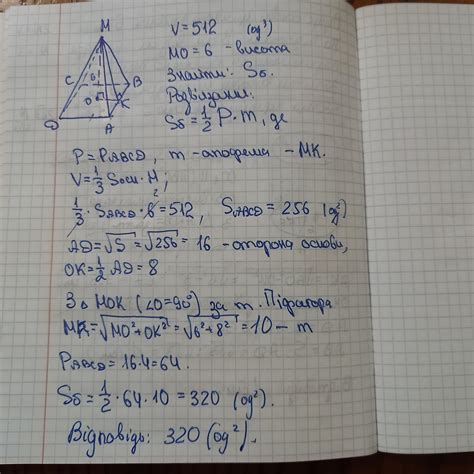 M
C
6
B
O
K
D
A
V = 512 (од³)
MO = 6 - висота
Знайти: Sб.
Розв'язання:
Sб = 1/2 P · m, де
P = PABCD, m - апофема - MK.
V = 1/3 Sосн · H;
1/3 · SABCD · 6 = 512, SABCD = 256 (од²)
2
AD = √S = √256 = 16 - сторона основи,
OK = 1/2 AD = 8
З Δ MOK (∠O = 90°) за т. Піфагора
MK = √MO² + OK² = √6² + 8² = 10 - m
PABCD = 16·4 = 64.
Sб = 1/2 · 64 · 10 = 320 (од²).
Відповідь: 320 (од²).